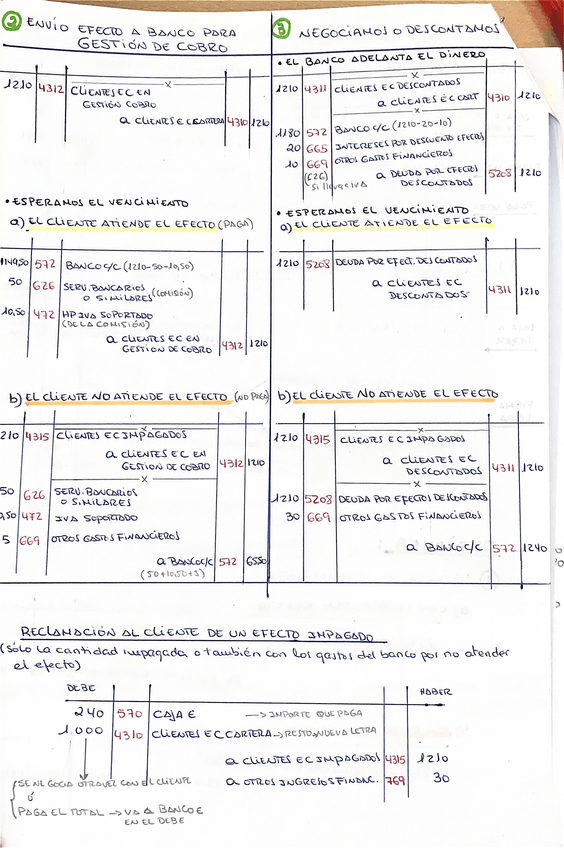 ② ENVÍO EFECTO A BANCO PARA
GESTIÓN DE COBRO
x
1210 4312 CLIENTES EC EN
GESTIÓN COBRO
a CLIENTES EC CARTERA 4310 1210
• ESPERAMOS EL VENCIMIENTO
a) EL CLIENTE ATIENDE EL EFECTO (PAGA)
1149,50 572 BANCO C/C (1210-50-10,50)
50 626 SERV. BANCARIOS
O SIMILARES (COMISIÓN)
10,50 472 HP IVA SOPORTADO
(DE LA COMISIÓN)
a CLIENTES EC EN
GESTION DE COBRO 4312 1210
b) EL CLIENTE NO ATIENDE EL EFECTO (NO PAGA)
210 4315 CLIENTES EC IMPAGADOS
a CLIENTES EC EN
GESTION DE COBRO 4312 1210
x
50 626 SERV. BANCARIOS
O SIMILARES
,50 472 IVA SOPORTADO
5 669 OTROS GASTOS FINANCIEROS
a BANCO C/C 572 65,50
(50+10,50+5)
③ NEGOCIAMOS O DESCONTAMOS
• EL BANCO ADELANTA EL DINERO
x
1210 4311 CLIENTES EC DESCONTADOS
a CLIENTES EC CART 4310 1210
x
1180 572 BANCO C/C (1210-20-10)
20 665 INTERESES POR DESCUENTO EFECTOS
10 669 OTROS GASTOS FINANCIEROS
(626)
Si lleva IVA
a DEUDA POR EFECTOS
DESCONTADOS 5208 1210
• ESPERAMOS EL VENCIMIENTO
a) EL CLIENTE ATIENDE EL EFECTO
1210 5208 DEUDA POR EFECT. DESCONTADOS
a CLIENTES EC
DESCONTADOS 4311 1210
b) EL CLIENTE NO ATIENDE EL EFECTO
1210 4315 CLIENTES EC IMPAGADOS
a CLIENTES EC
DESCONTADOS 4311 1210
x
1210 5208 DEUDA POR EFECTOS DESCONTADOS
30 669 OTROS GASTOS FINANCIEROS
a BANCO C/C 572 1240
RECLAMACIÓN AL CLIENTE DE UN EFECTO IMPAGADO
(Sólo la cantidad impagada o también con los gastos del banco por no atender
el efecto)
DEBE HABER
240 570 CAJA € → IMPORTE QUE PAGA
1.000 4310 CLIENTES EC CARTERA → RESTO NUEVA LETRA
a CLIENTES EC IMPAGADOS 4315 1210
a OTROS INGRESOS FINANC. 769 30
SE NEGOCIA OTRA VEZ CON EL CLIENTE
ó
PAGA EL TOTAL → VA A BANCO €
EN EL DEBE